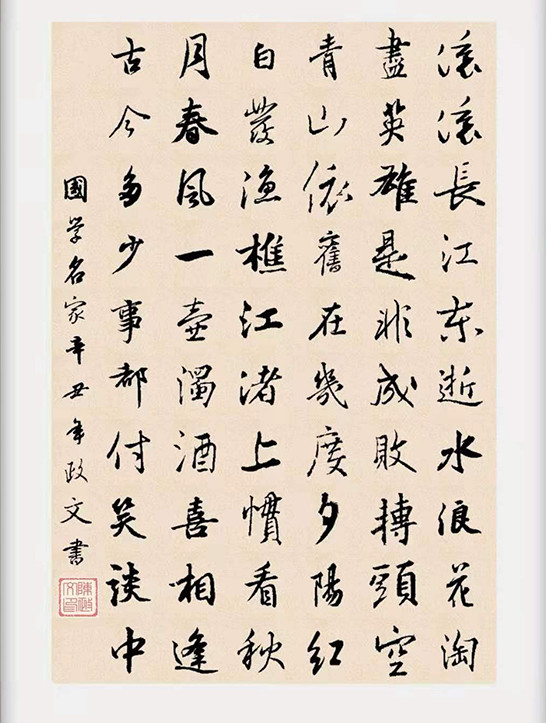 滚滚長江東逝水浪花淘
盡英雄是非成敗轉頭空
青山依舊在幾度夕陽紅
白發漁樵江渚上慣看秋
月春風一壺濁酒喜相逢
古今多少事都付笑談中
國学名家辛丑年政文書
陳政文印